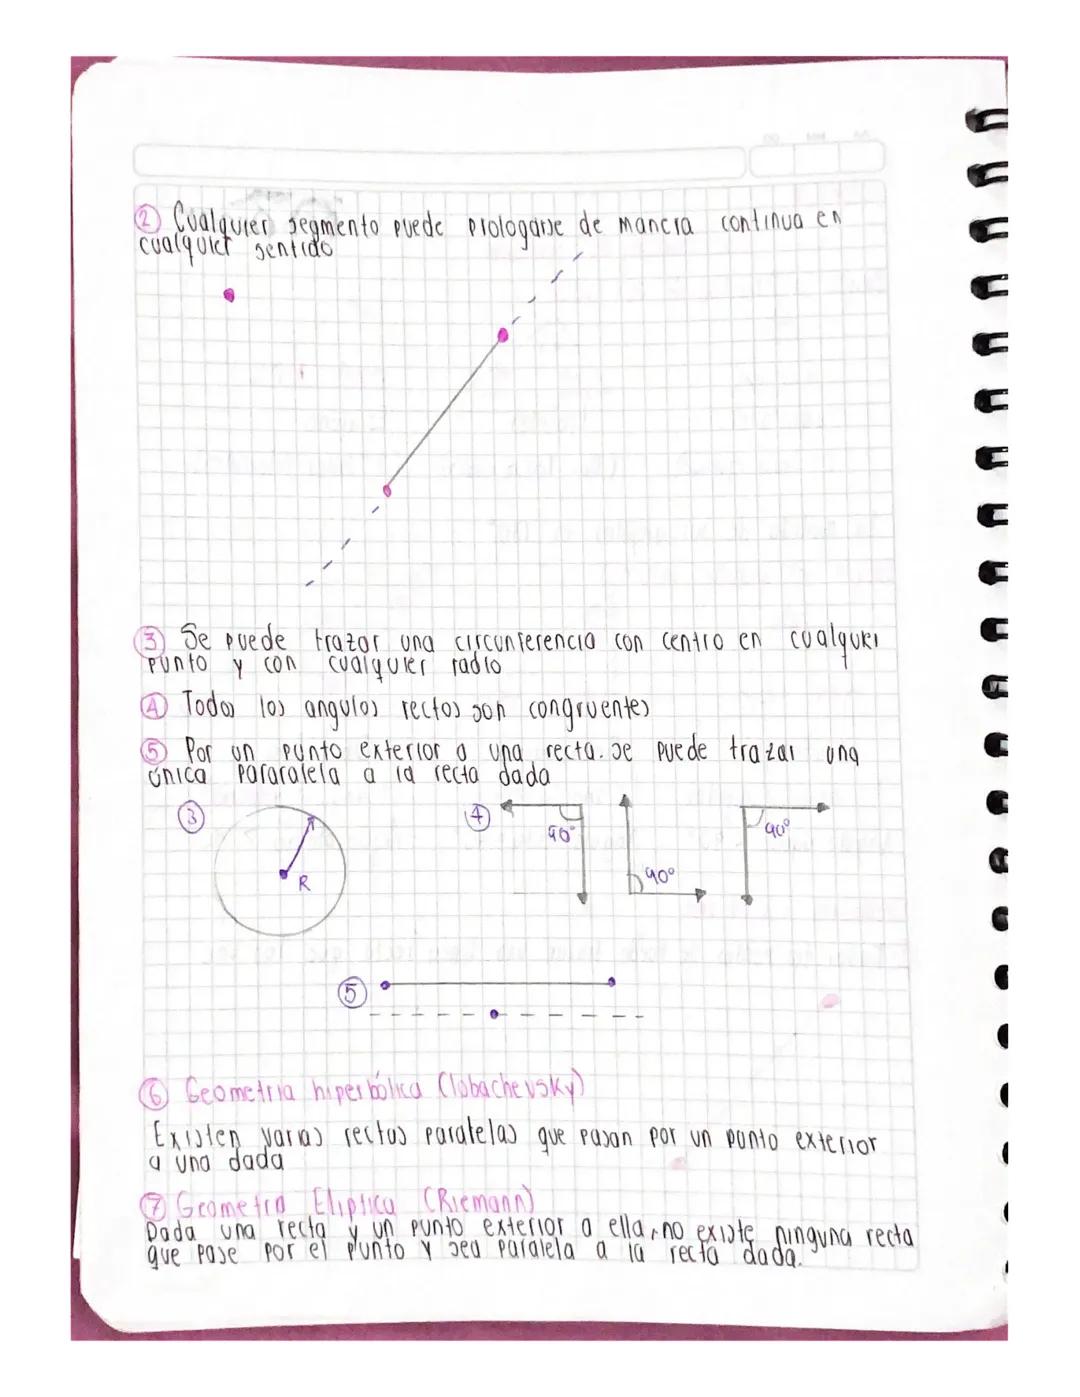 ② Cualquier segmento puede prologarse de manera continua en
cualquier sentido
③ Se puede trazar una circunferencia con centro en cualquier
punto y con cualquier radio
④ Todos los angulos rectos son congruentes
⑤ Por un punto exterior a una recta. se puede trazar una
única pararalela a la recta dada
③
R
④
90°
90°
90°
⑤
⑥ Geometria hiperbólica (lobachevsky)
Existen varias rectas paralelas que pasan por un punto exterior
a una dada
⑦ Geometria Eliptica (Riemann)
Dada una recta y un punto exterior a ella, no existe ninguna recta
que pase por el punto y sea paralela a la recta dada.